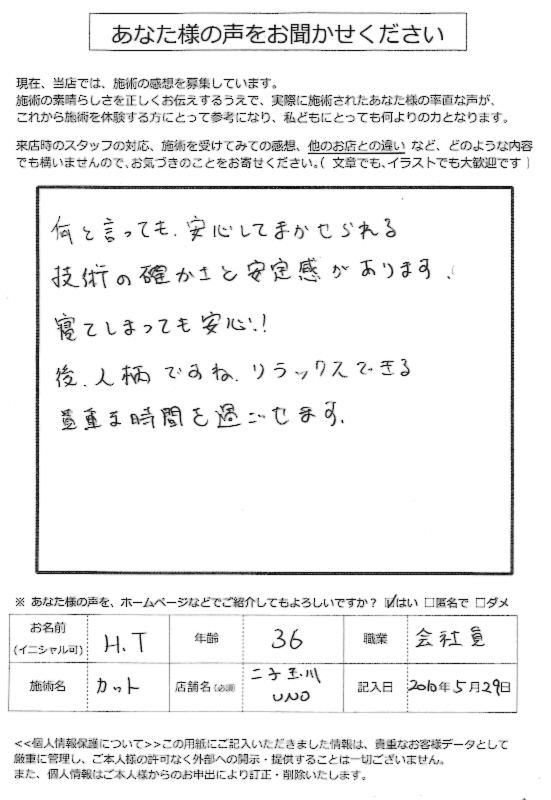 あなた様の声をお聞かせください
現在、当店では、施術の感想を募集しています。
施術の素晴らしさを正しくお伝えするうえで、実際に施術されたあなた様の率直な声が、
これから施術を体験する方にとって参考になり、私どもにとっても何よりの力となります。
来店時のスタッフの対応、施術を受けてみての感想、他のお店との違い など、どのような内容
でも構いませんので、お気づきのことをお寄せください。( 文章でも、イラストでも大歓迎です )
何と言っても、安心してまかせられる
技術の確かさと安定感があります、
寝てしまっても安心!!
後、人柄ですね、リラックスできる
貴重な時間を過ごせます。
※ あなた様の声を、ホームページなどでご紹介してもよろしいですか? ☑はい □匿名で □ダメ
お名前 (イニシャル可) H.T 年齢 36 職業 会社員
施術名 カット 店舗名(必須) 二子玉川 UNO 記入日 2010年5月29日
<<個人情報保護について>>この用紙にご記入いただきました情報は、貴重なお客様データとして
厳重に管理し、ご本人様の許可なく外部への開示・提供することは一切ございません。
また、個人情報はご本人様からのお申出により訂正・削除いたします。